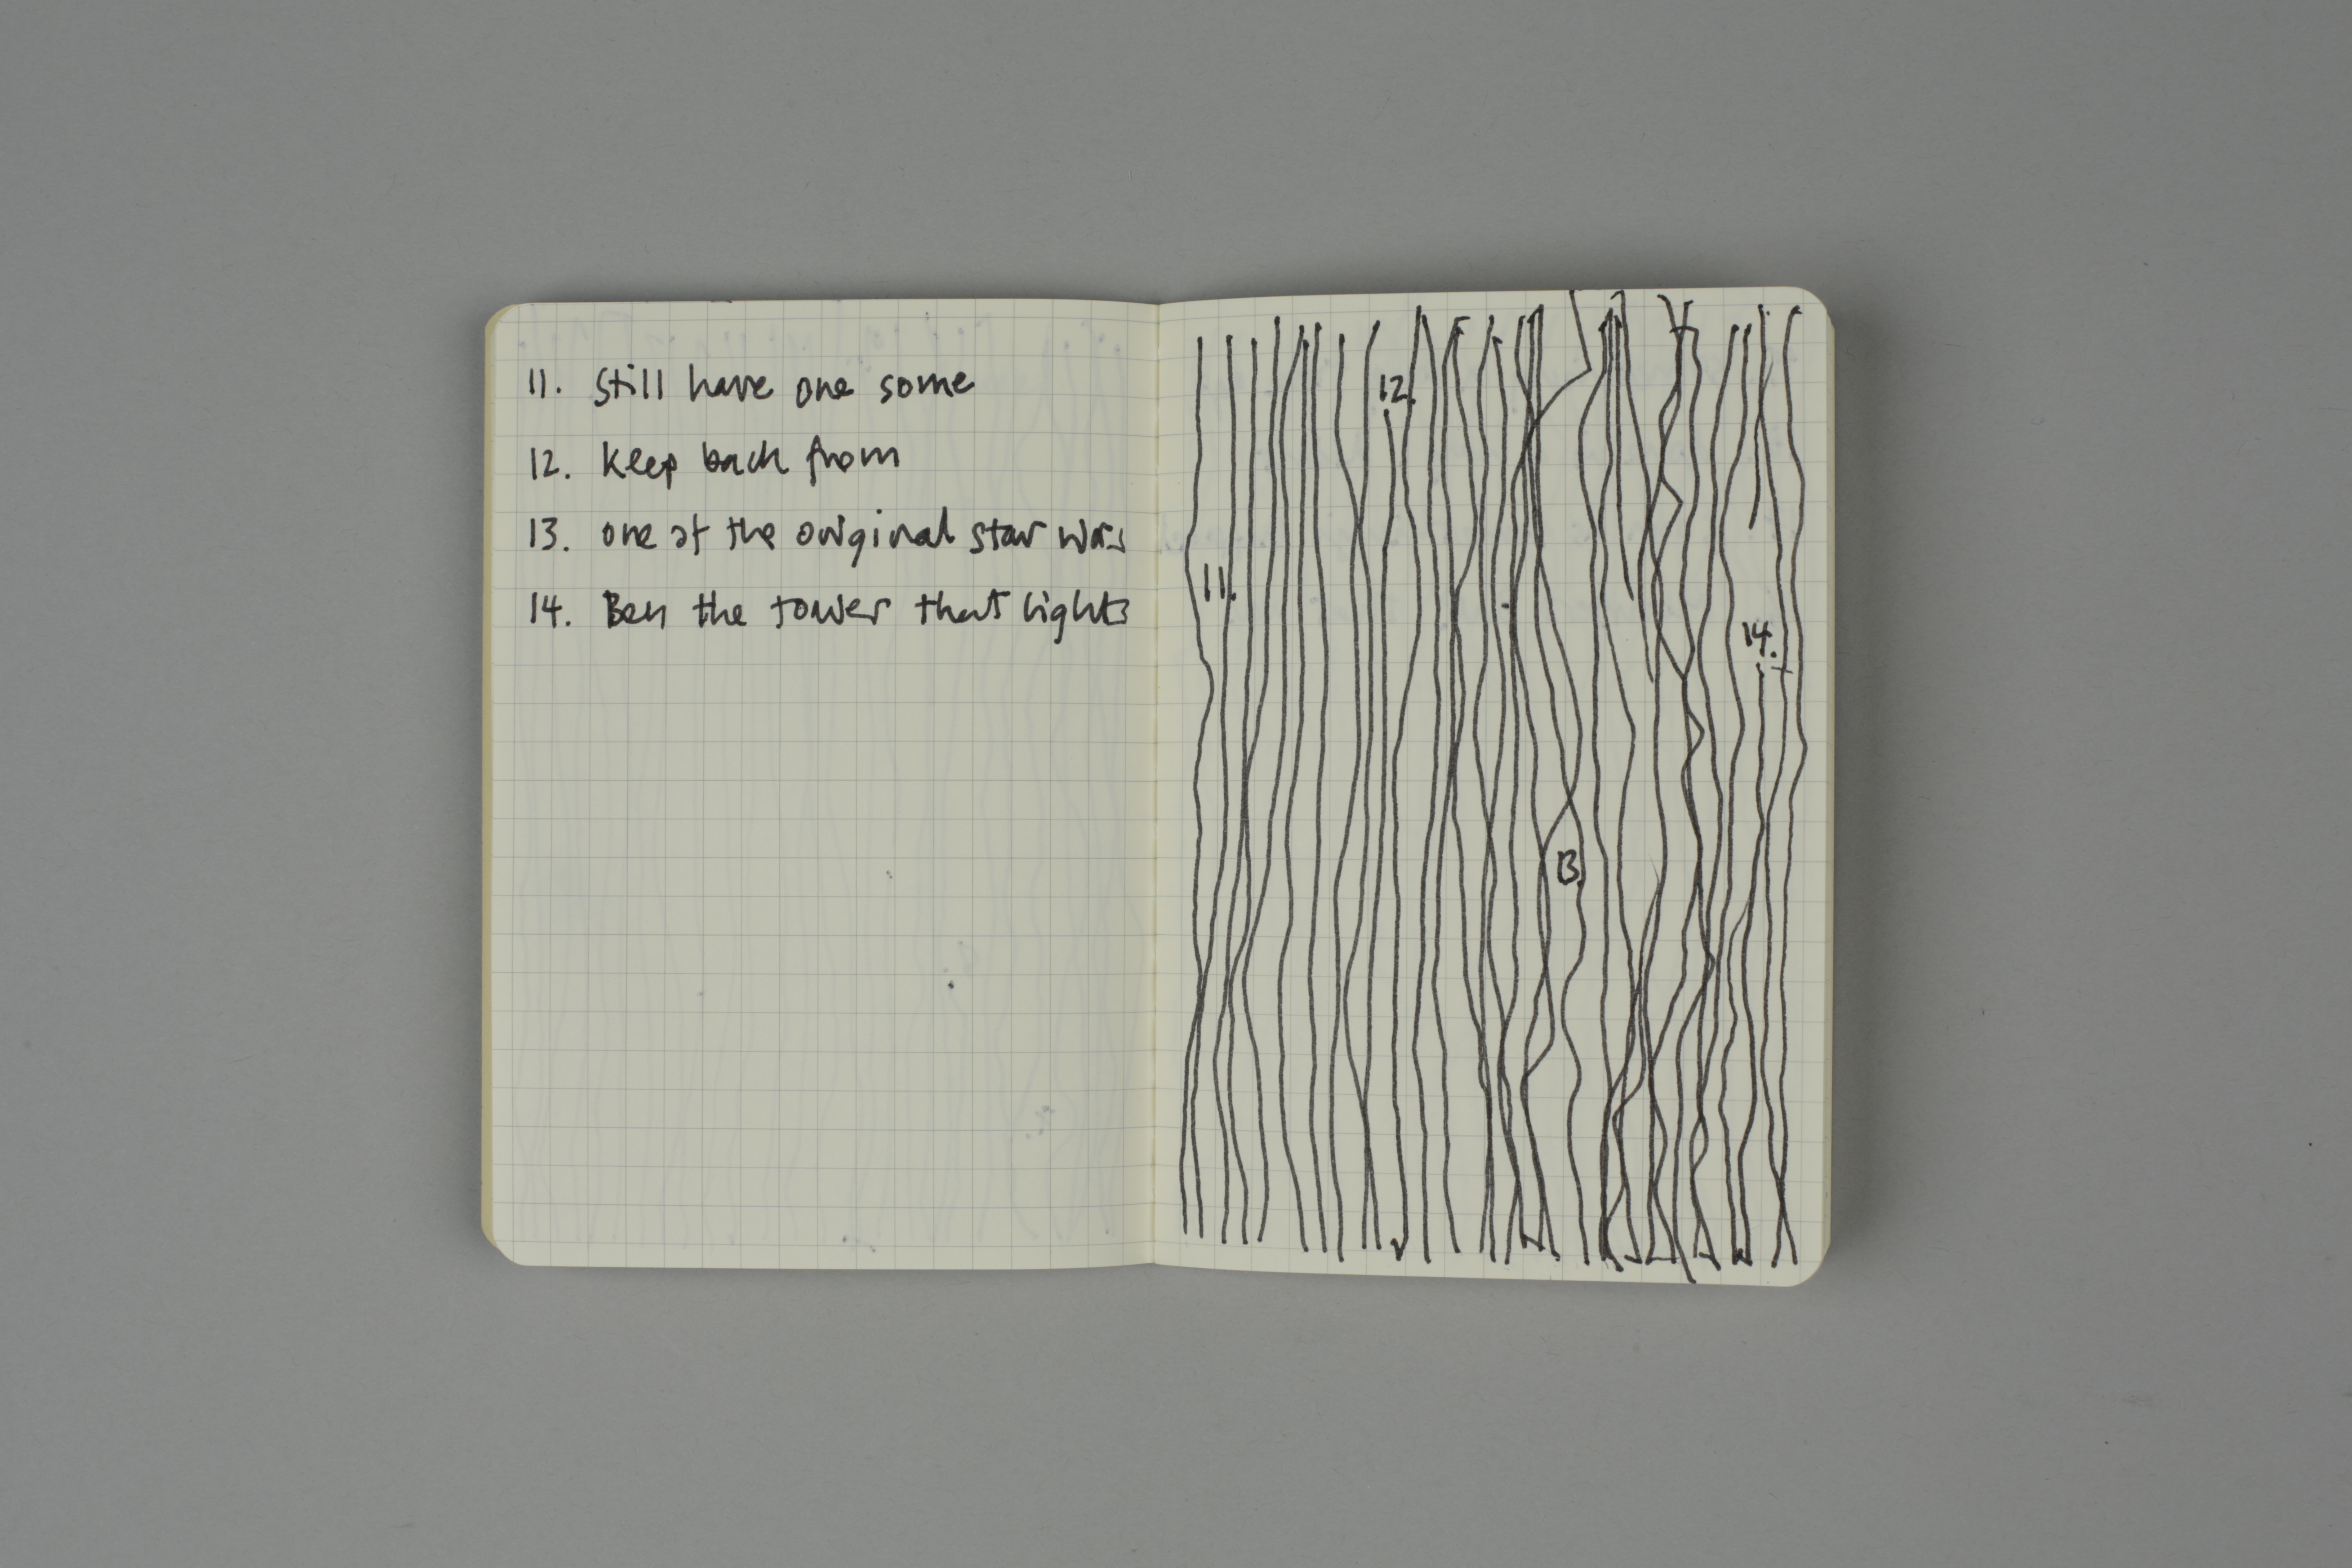 11. Still have one some
12. Keep back from
13. one of the original star wars
14. Ben the tower that lights
12.
11.
14.
13.